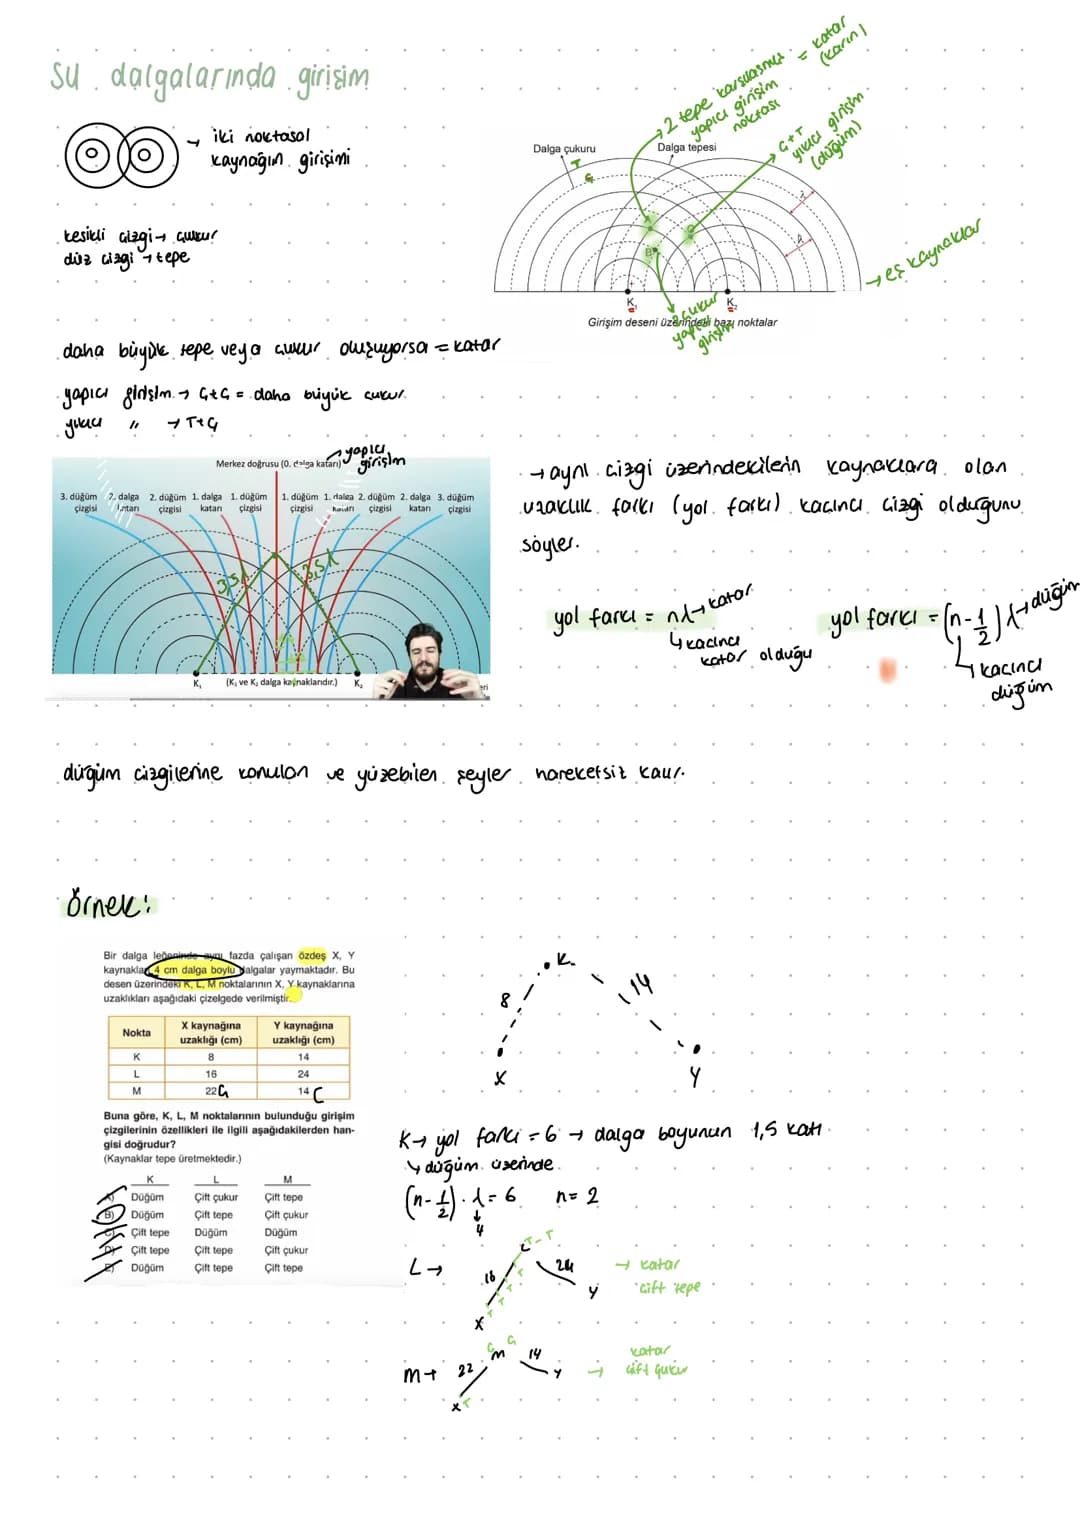 su dalgalarında girişim
→ iki noktasal
kaynağın girişimi
kesikli çizgi → çukur
düz çizgi → tepe
→ 2 tepe karşılaşması = katar
(karın)
yapıcı girişim
noktası
Ç+T
yıkıcı girişim
(düğüm)
Dalga çukuru
Dalga tepesi
T
Ç
λ
λ
B
K₁
K₂
→ eş kaynaklar
2 çukur
yapıcı
girişim
Girişim deseni üzerindeki bazı noktalar
daha büyük tepe veya çukur oluşuyorsa = katar
yapıcı girişim → Ç+Ç = daha büyük çukur
yıkıcı " → T+Ç
Merkez doğrusu (0. dalga katarı)
→ yapıcı
girişim
3. düğüm çizgisi
2. dalga katarı
2. düğüm çizgisi
1. dalga katarı
1. düğüm çizgisi
1. düğüm çizgisi
1. dalga katarı
2. düğüm çizgisi
2. dalga katarı
3. düğüm çizgisi
3,5λ
3,5λ
K₁
(K₁ ve K₂ dalga kaynaklarıdır.)
K₂
→ aynı çizgi üzerindekilerin kaynaklara olan
uzaklık farkı (yol farkı) kaçıncı çizgi olduğunu
söyler.
yol farkı = nλ → katar
↳ kaçıncı
katar olduğu
yol farkı = (n-1/2) λ → düğüm
↳ kaçıncı
düğüm
düğüm çizgilerine konulan ve yüzebilen şeyler hareketsiz kalır.
örnek:
Bir dalga leğeninde aynı fazda çalışan özdeş X, Y
kaynakları 4 cm dalga boylu dalgalar yaymaktadır. Bu
desen üzerindeki K, L, M noktalarının X, Y kaynaklarına
uzaklıkları aşağıdaki çizelgede verilmiştir.
Nokta
X kaynağına uzaklığı (cm)
Y kaynağına uzaklığı (cm)
K 8 14
L 16 24
M 22 Ç 14 Ç
Buna göre, K, L, M noktalarının bulunduğu girişim
çizgilerinin özellikleri ile ilgili aşağıdakilerden han-
gisi doğrudur?
(Kaynaklar tepe üretmektedir.)
K L M
A) Düğüm Çift çukur Çift tepe
B) Düğüm Çift tepe Çift çukur
C) Çift tepe Düğüm Düğüm
D) Çift tepe Çift tepe Çift çukur
E) Düğüm Çift tepe Çift tepe
K
8
14
X
Y
K → yol farkı = 6 → dalga boyunun 1,5 katı
↳ düğüm üzerinde
(n-1/2) . λ = 6 n = 2
4
L →
L T-T
16
24
X
Y
T T T T
→ katar
çift tepe
M →
22
Ç M Ç
14
X T
Y
→ katar
çift çukur